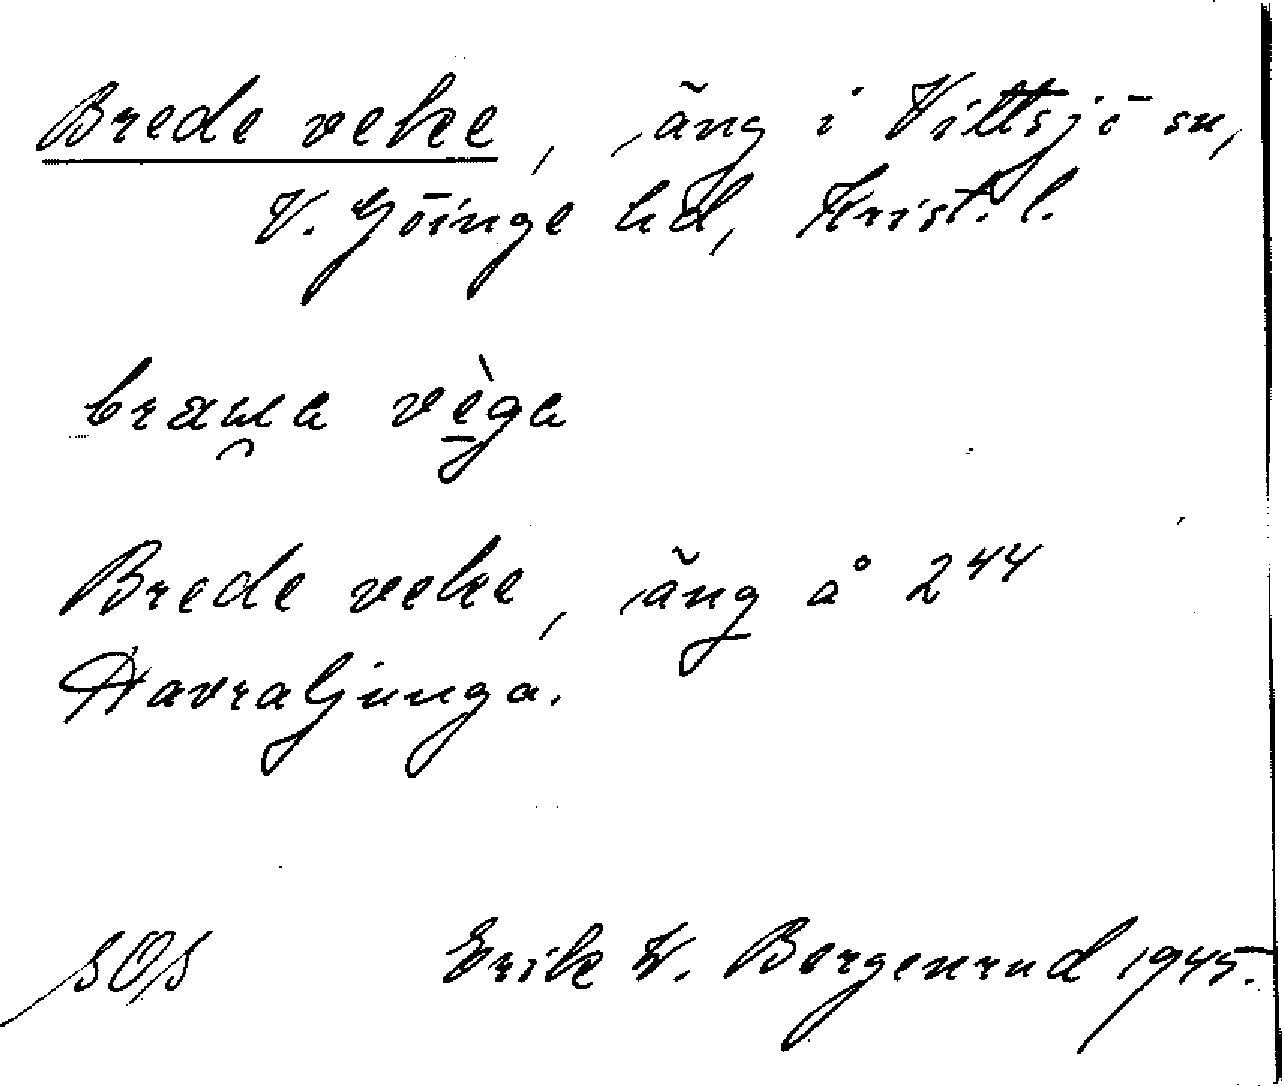 Brede veke, äng i Vittsjö sn,
V. Göinge hd, Krist. l.
vèga
Brede veke, äng å 2⁴⁴
Havraljunga.
SOS Erik W. Bergenrud 1945.